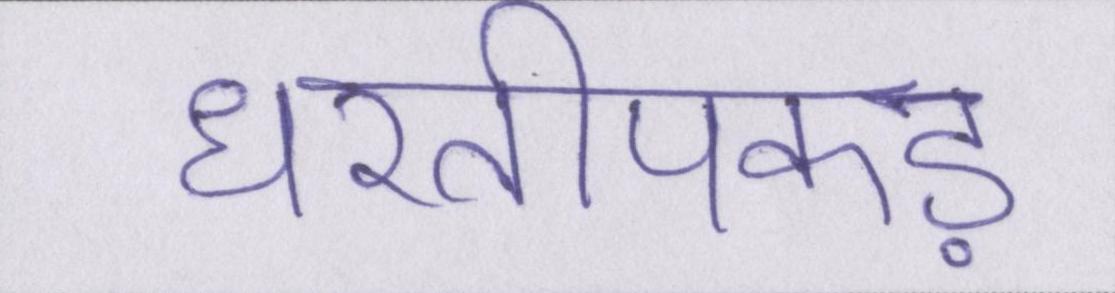 धरतीपकड़